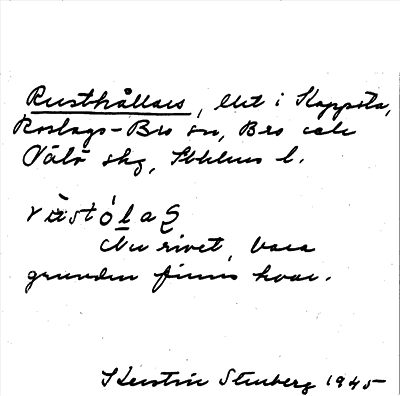 Rusthållars, lht i Koppsta,
Roslags-Bro sn, Bro och
Väto skg, Sthlms l.
rùstólaş
Nu rivet, bara
grunden finns kvar.
Kerstin Stenberg 1945